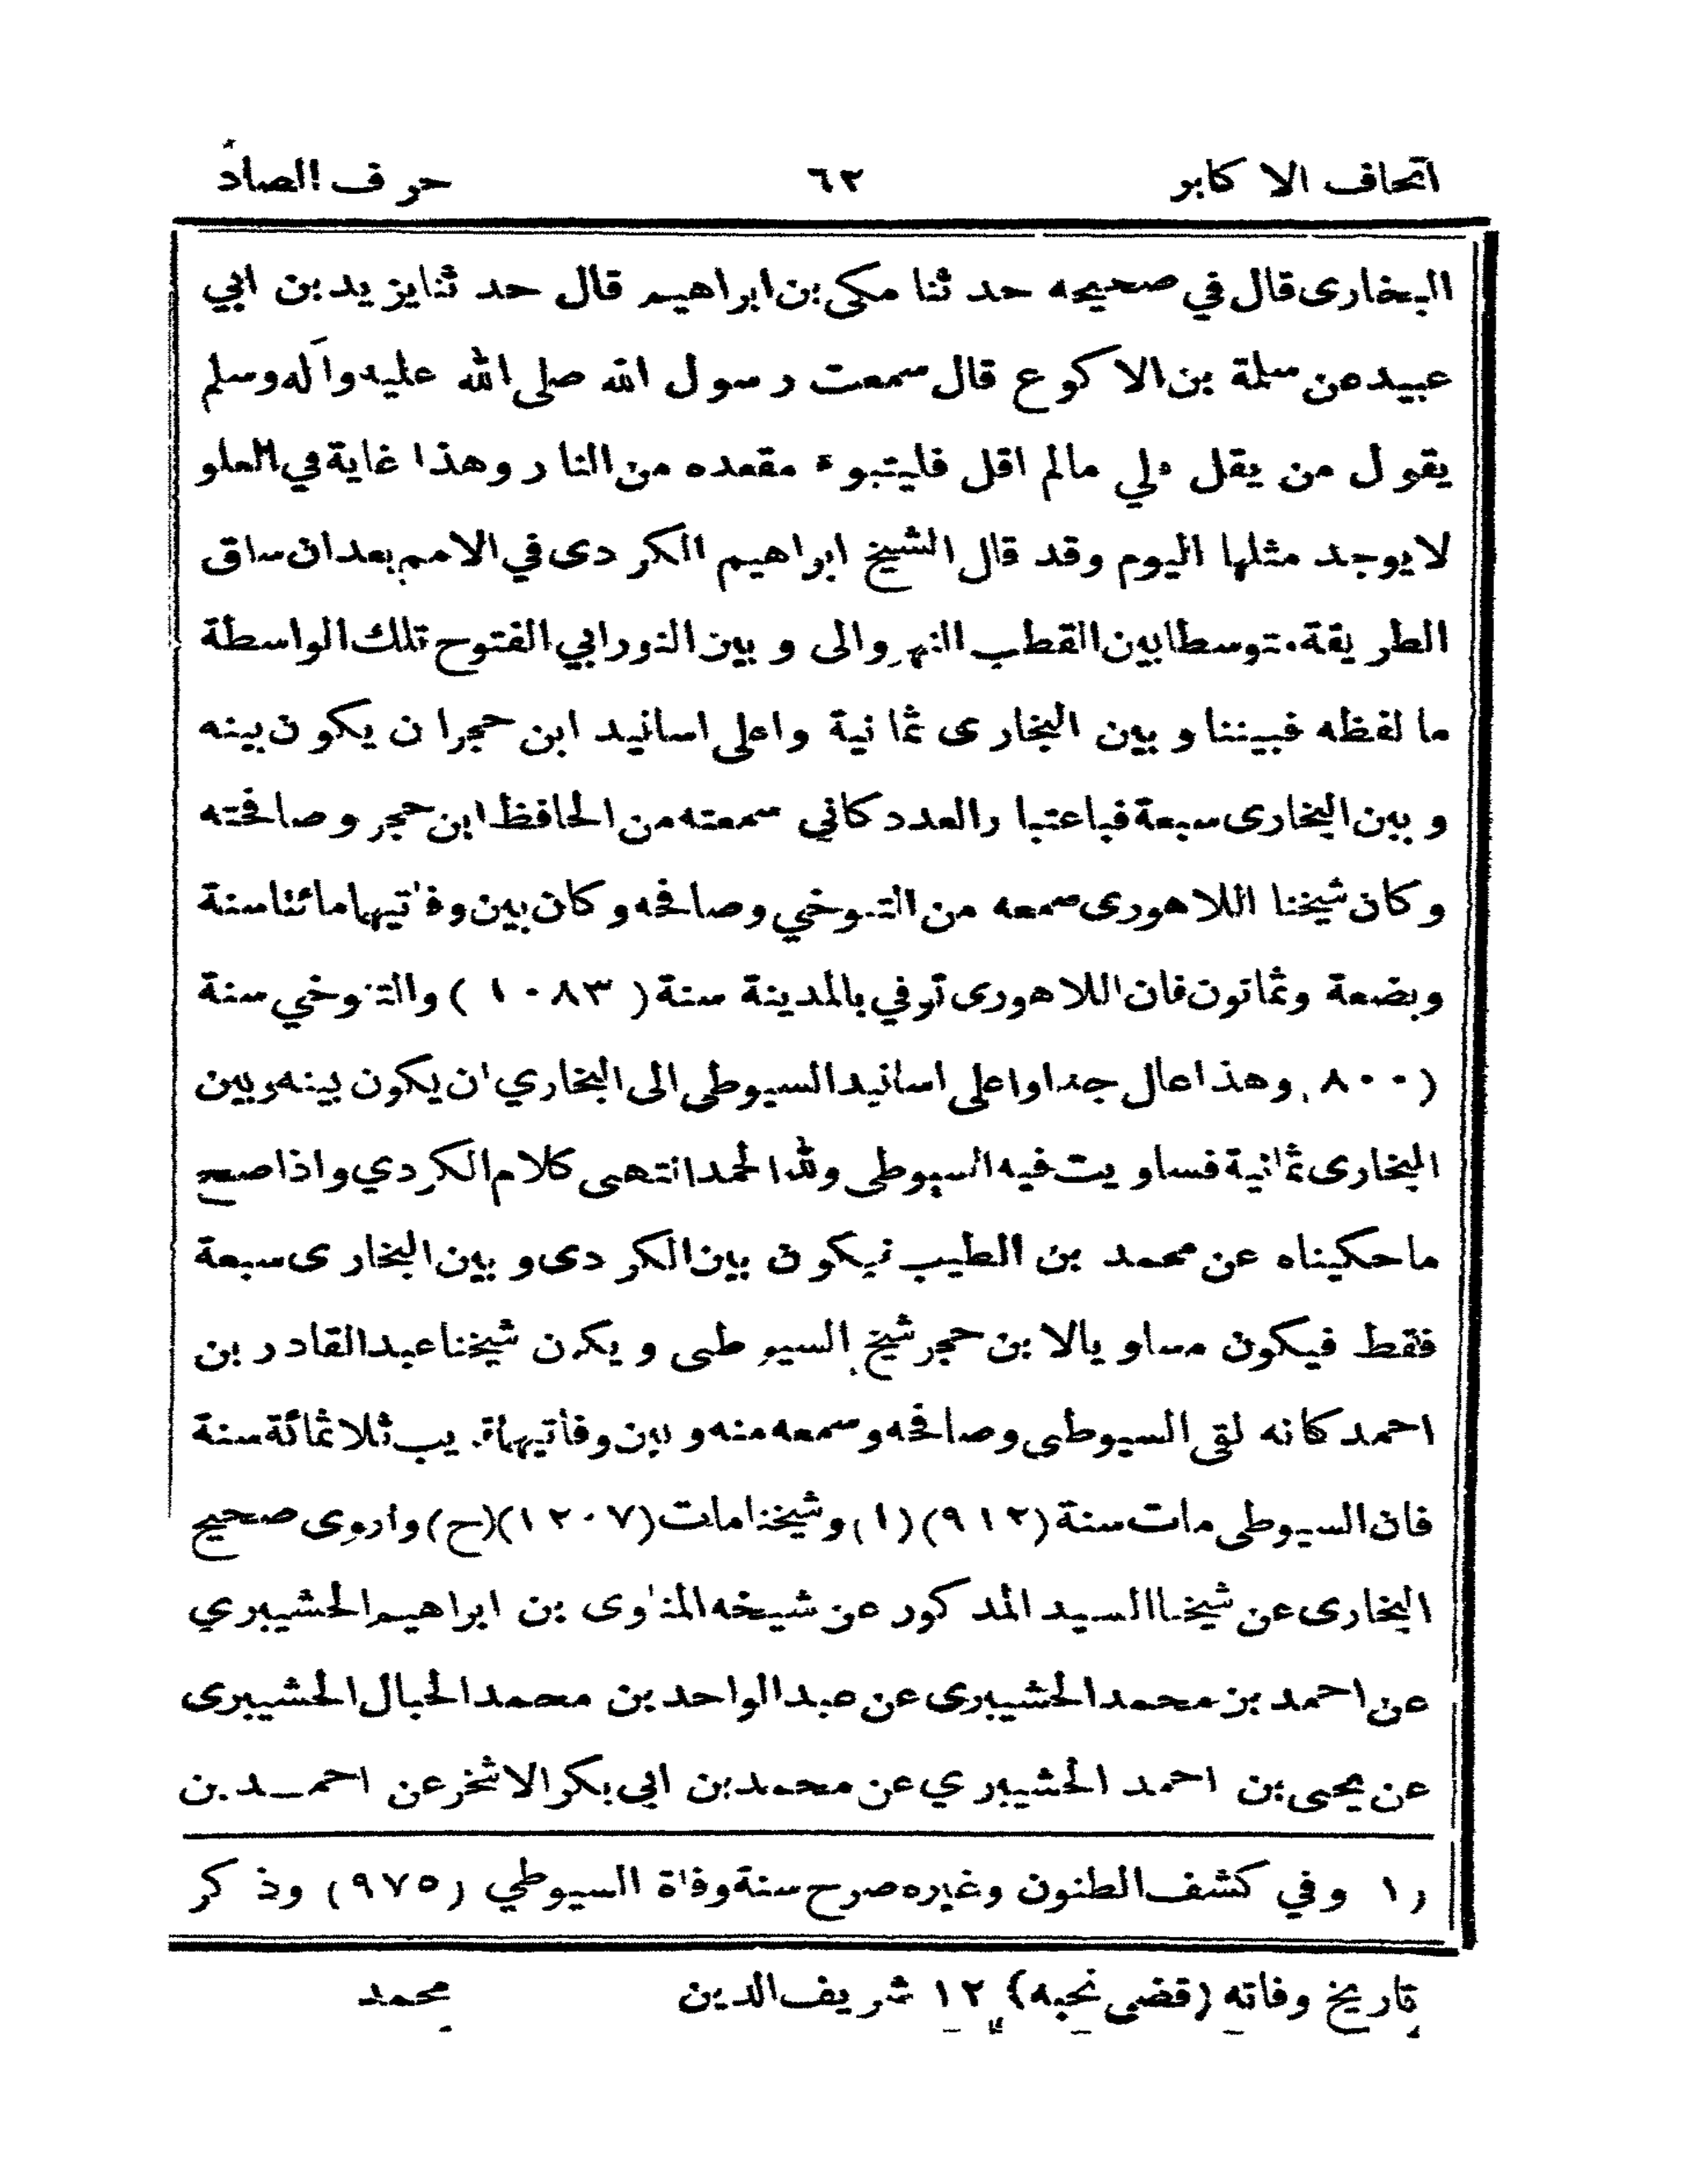 اتحاف الاكابر ٦٢ حرف الصاد
البخارى قال في صحيحه حدثنا مكى بن ابراهيم قال حدثنا يزيد بن ابي
عبيد عن سلمة بن الاكوع قال سمعت رسول الله صلى الله عليه وآله وسلم
يقول من يقل علي مالم اقل فليتبوء مقعده من النار وهذا غاية في العلو
لا يوجد مثلها اليوم وقد قال الشيخ ابراهيم الكردى في الامم بعد ان ساق
الطريقة متوسطا بين القطب النهروالى و بين النور ابي الفتوح تلك الواسطة
ما لفظه فبيننا و بين البخارى ثمانية واعلى اسانيد ابن حجر ان يكون بينه
و بين البخارى سبعة فباعتبار العدد كاني سمعته من الحافظ ابن حجر وصافحته
وكان شيخنا اللاهورى سمعه من التنوخي وصافحه وكان بين وفاتيهما مائتا سنة
وبضعة وثمانون فان اللاهورى توفي بالمدينة سنة (١٠٨٣) والتنوخي سنة
(٨٠٠) وهذا عال جدا واعلى اسانيد السيوطى الى البخاري ان يكون بينه وبين
البخارى ثمانية فساويت فيه السيوطى ولله الحمد انتهى كلام الكردي واذا صح
ما حكيناه عن محمد بن الطيب فيكون بين الكردى و بين البخارى سبعة
فقط فيكون مساويا لابن حجر شيخ السيوطى ويكون شيخنا عبد القادر بن
احمد كانه لقى السيوطى وصافحه وسمعه منه و بين وفاتيهما قريب ثلاثمائة سنة
فان السيوطى مات سنة (٩١٢) (١) وشيخنا مات (١٢٠٧) (ح) واروى صحيح
البخارى عن شيخنا السيد المذكور عن شيخه المناوى بن ابراهيم الحشيبري
عن احمد بن محمد الحشيبرى عن عبد الواحد بن محمد الحبال الحشيبرى
عن يحيى بن احمد الحشيبري عن محمد بن ابى بكر الاشخر عن احمد بن
(١ وفي كشف الظنون وغيره صرح سنة وفاة السيوطي (٩٧٥) وذكر
تاريخ وفاته (قضى نحبه) ١٢ شريف الدين محمد